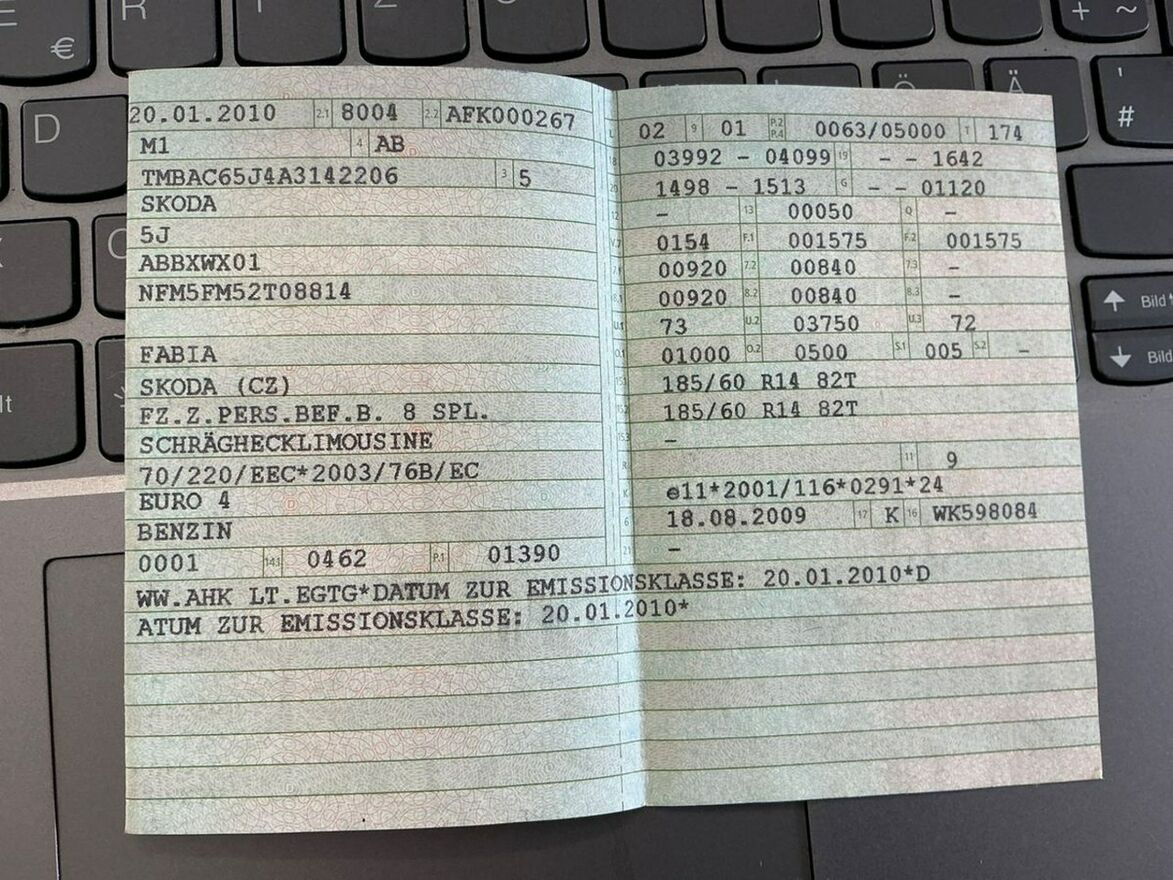 €
D
Ö
Ä
+ ~
'
#
Bild
Bild
lt
20.01.2010 2.1 8004 2.2 AFK000267
M1 4 AB
TMBAC65J4A3142206 3 5
SKODA
5J
ABBXWX01
NFM5FM52T08814
FABIA
SKODA (CZ)
FZ.Z.PERS.BEF.B. 8 SPL.
SCHRÄGHECKLIMOUSINE
70/220/EEC*2003/76B/EC
EURO 4
BENZIN
0001 14.1 0462 P.1 01390
L 02 9 01 P.2 P.4 0063/05000 T 174
18 03992 - 04099 19 - - 1642
20 1498 - 1513 G - - 01120
12 - 13 00050 Q -
V.7 0154 F.1 001575 F.2 001575
7.1 00920 7.2 00840 7.3 -
8.1 00920 8.2 00840 8.3 -
U.1 73 U.2 03750 U.3 72
O.1 01000 O.2 0500 S.1 005 S.2 -
15.1 185/60 R14 82T
15.2 185/60 R14 82T
15.3 -
R 11 9
K e11*2001/116*0291*24
6 18.08.2009 17 K 16 WK598084
21 -
WW.AHK LT.EGTG*DATUM ZUR EMISSIONSKLASSE: 20.01.2010*D
ATUM ZUR EMISSIONSKLASSE: 20.01.2010*